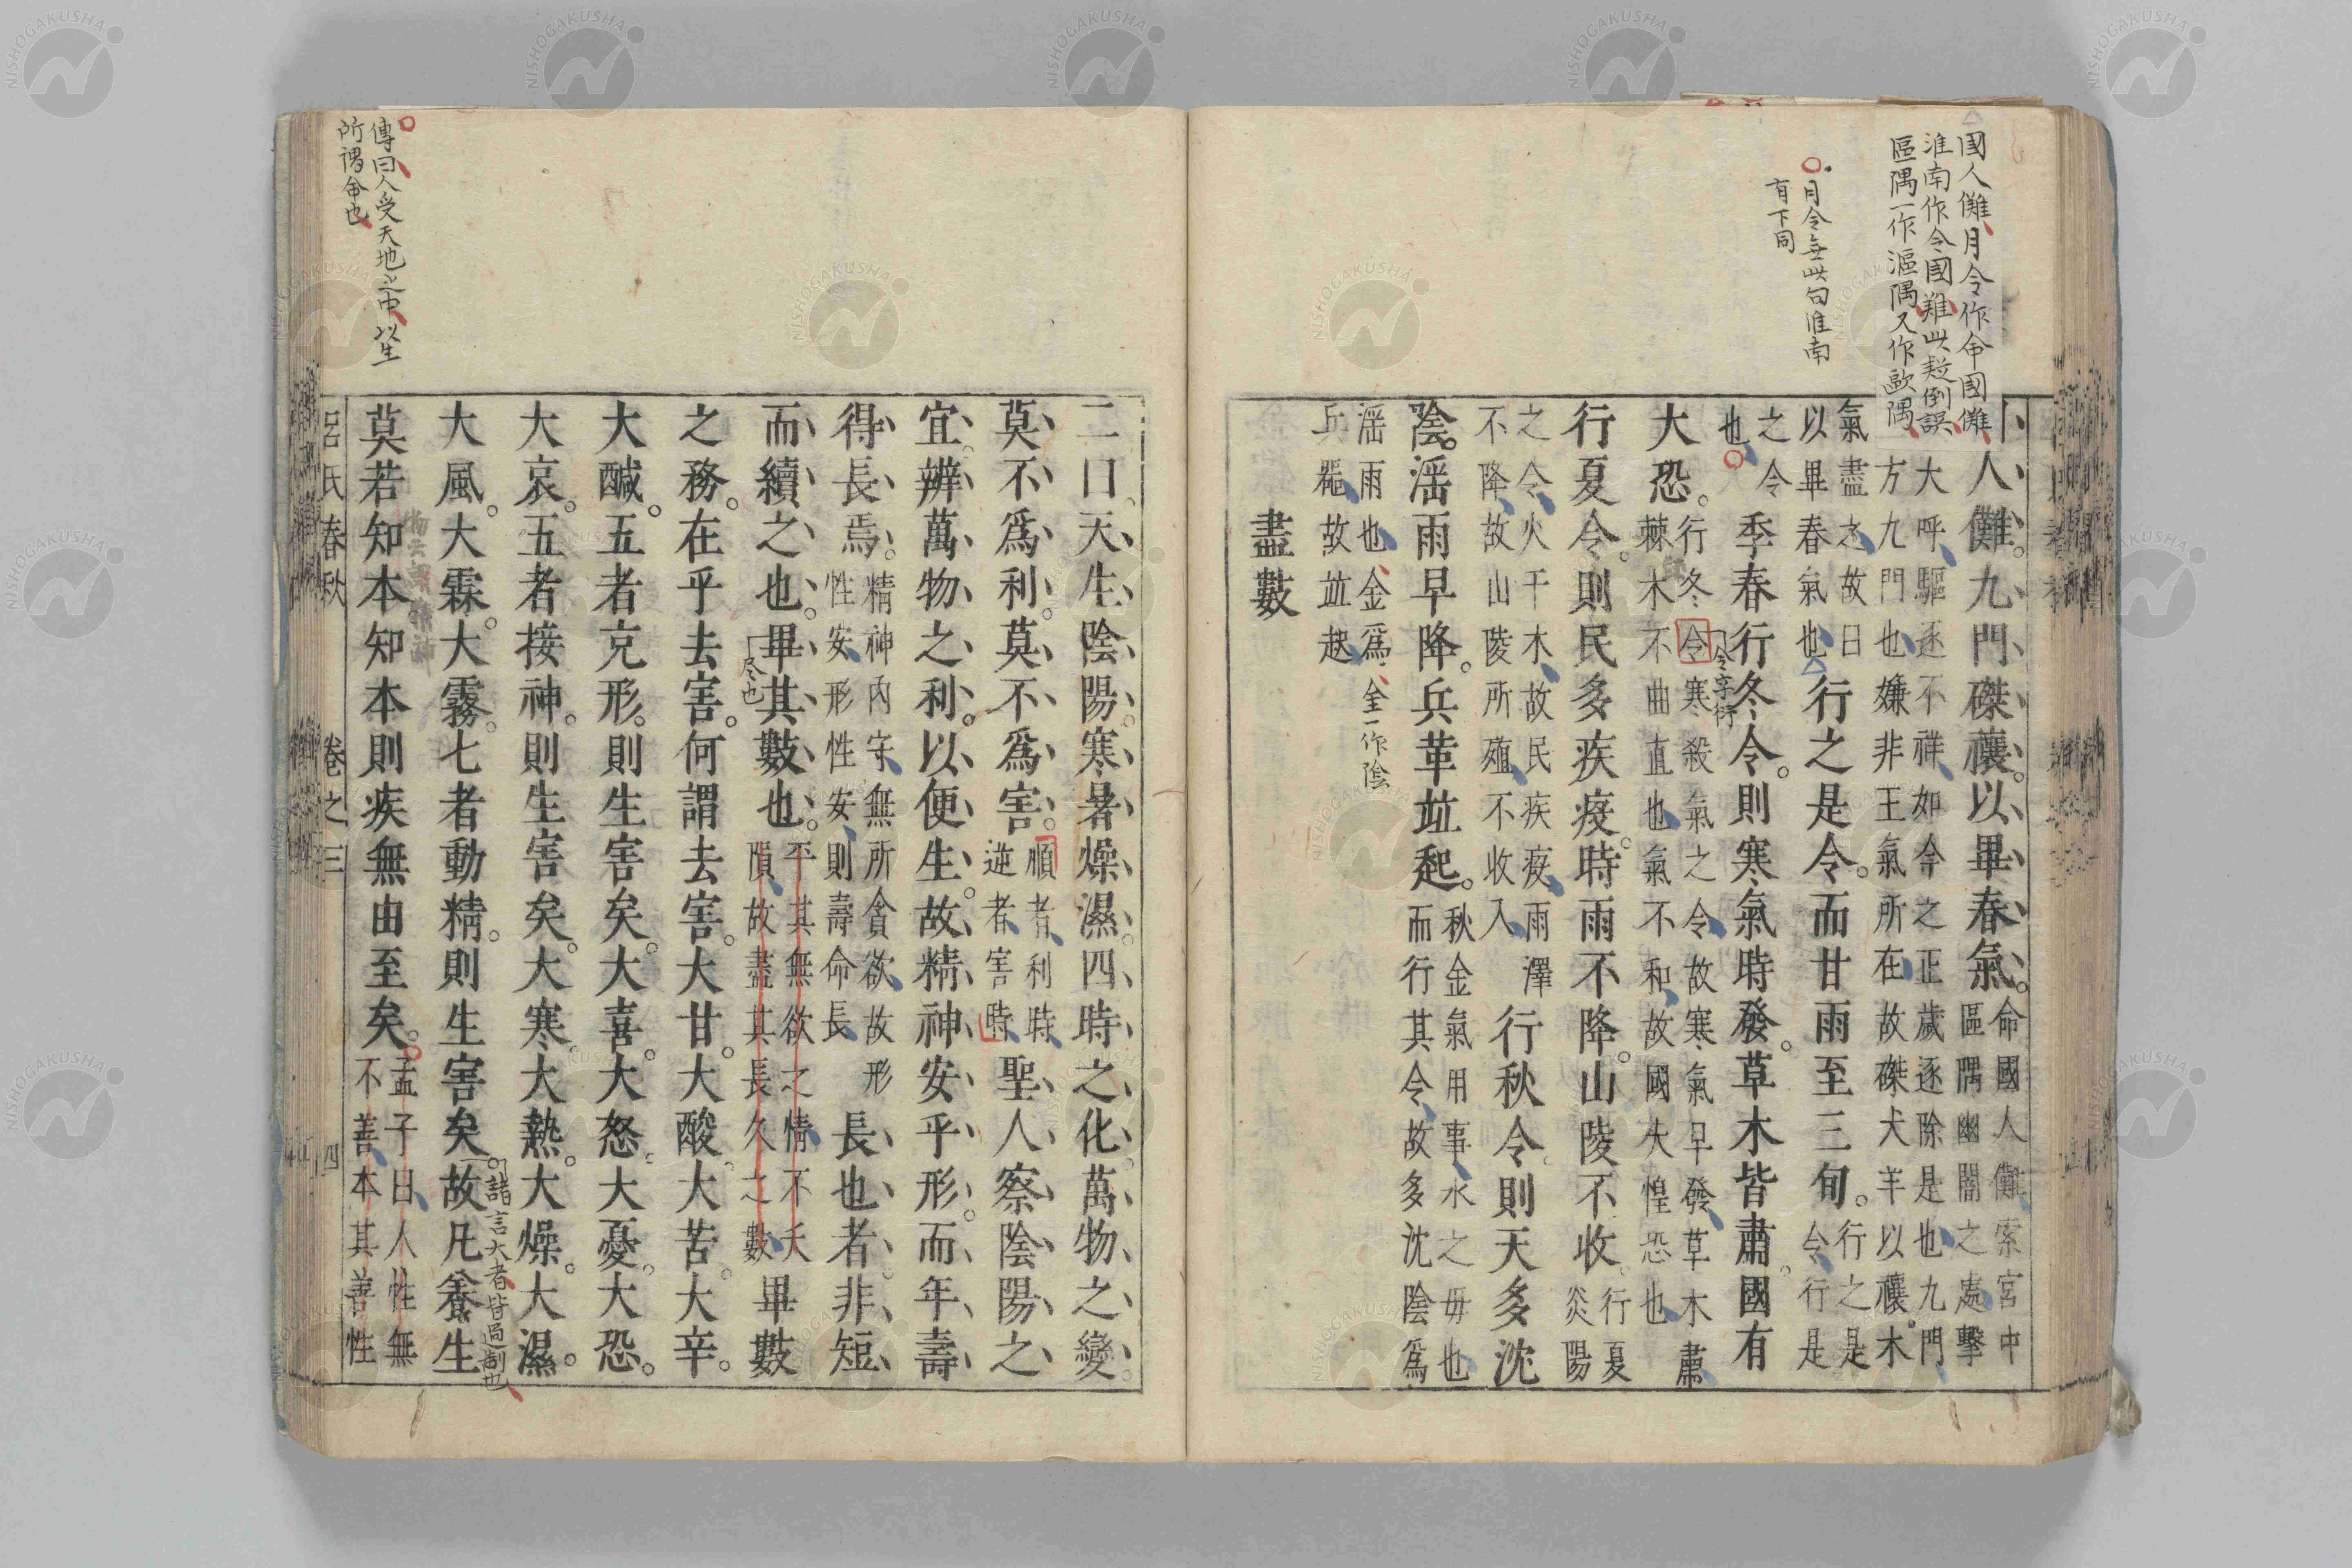 國人儺月令作命國儺
淮南作令國難此疑倒誤
區隅一作漚隅又作歐隅
月令無此句淮南
有下同
人儺。九門磔禳。以畢春氣。
命國人儺索宮中
區隅幽闇之處擊
大呼驅逐不祥如今之正歲逐除是也九門
方九門也嫌非王氣所在故磔犬羊以禳木
氣盡之故曰
以畢春氣也
行之是令。而甘雨至三旬。
行之是
令行是
之令
也
季春行冬令。則寒氣時發。草木皆肅。國有
令字衍
大恐。
行冬令寒殺氣之令故寒氣早發草木肅
棘木不曲直也氣不和故國大惶恐也
行夏令。則民多疾疫。時雨不降。山陵不收。
行夏
炎陽
之令火干木故民疾疫雨澤
不降故山陵所殖不收入
行秋令。則天多沈
陰。滛雨早降。兵革並起。
秋金氣用事水之毋也
而行其令故多沈陰爲
滛雨也金爲
仝一作陰
兵噐故並起
盡數
傳曰人受天地之中以生
所謂命也
二曰。天生陰陽。寒暑燥濕。四時之化。萬物之變。
莫不爲利。莫不爲害。
順者利時
逆者害時
聖人察陰陽之
宜。辨萬物之利。以便生。故精神安乎形。而年壽
得長焉。
精神內守無所貪欲故形
性安形性安則壽命長
長也者。非短
而續之也。畢其數也。
尽也
平其無欲之情不夭
隕故盡其長久之數
畢數
之務。在乎去害。何謂去害。大甘。大酸。大苦。大辛。
大醎。五者充形。則生害矣。大喜。大怒。大憂。大恐。
大哀。五者接神。則生害矣。大寒。大熱。大燥。大濕。
大風。大霖。大霧。七者動精。則生害矣。故凡養生
諸言大者皆過制也
莫若知本。知本則疾無由至矣。
孟子曰人性無
不善本其善性
呂氏春秋
卷之三
四